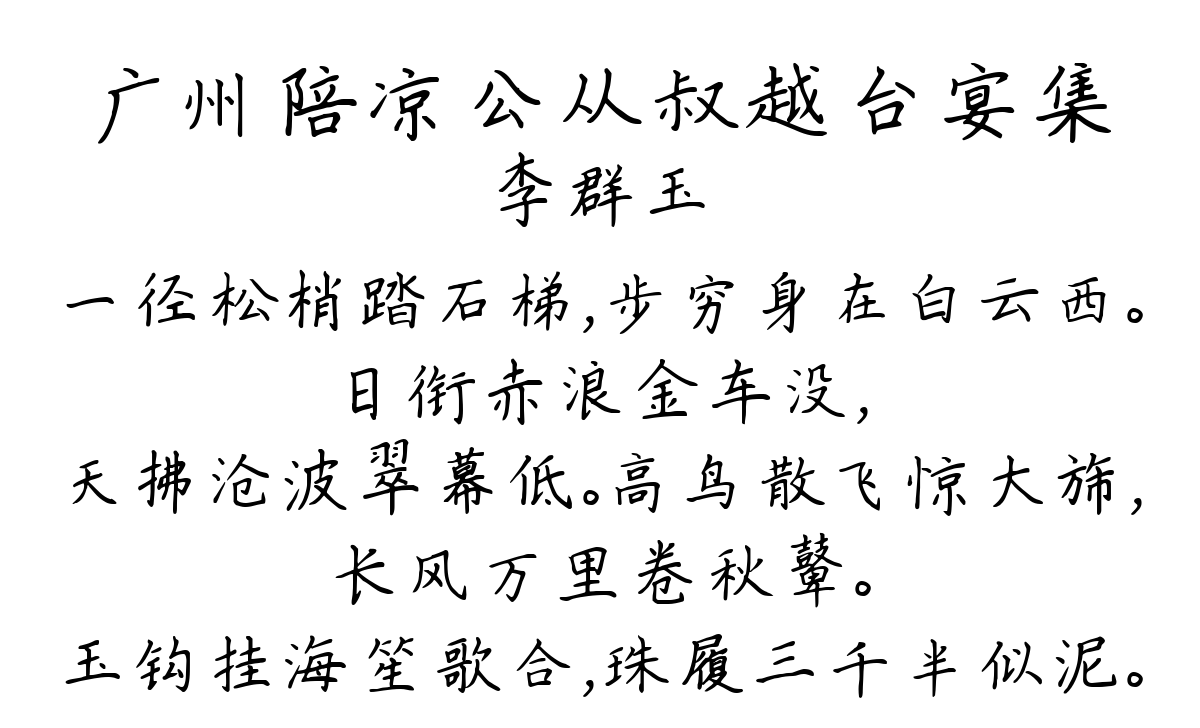 广州陪凉公从叔越台宴集
李群玉
一径松梢踏石梯,步穷身在白云西。
日衔赤浪金车没,
天拂沧波翠幕低。高鸟散飞惊大旆,
长风万里卷秋鼙。
玉钩挂海笙歌合,珠履三千半似泥。